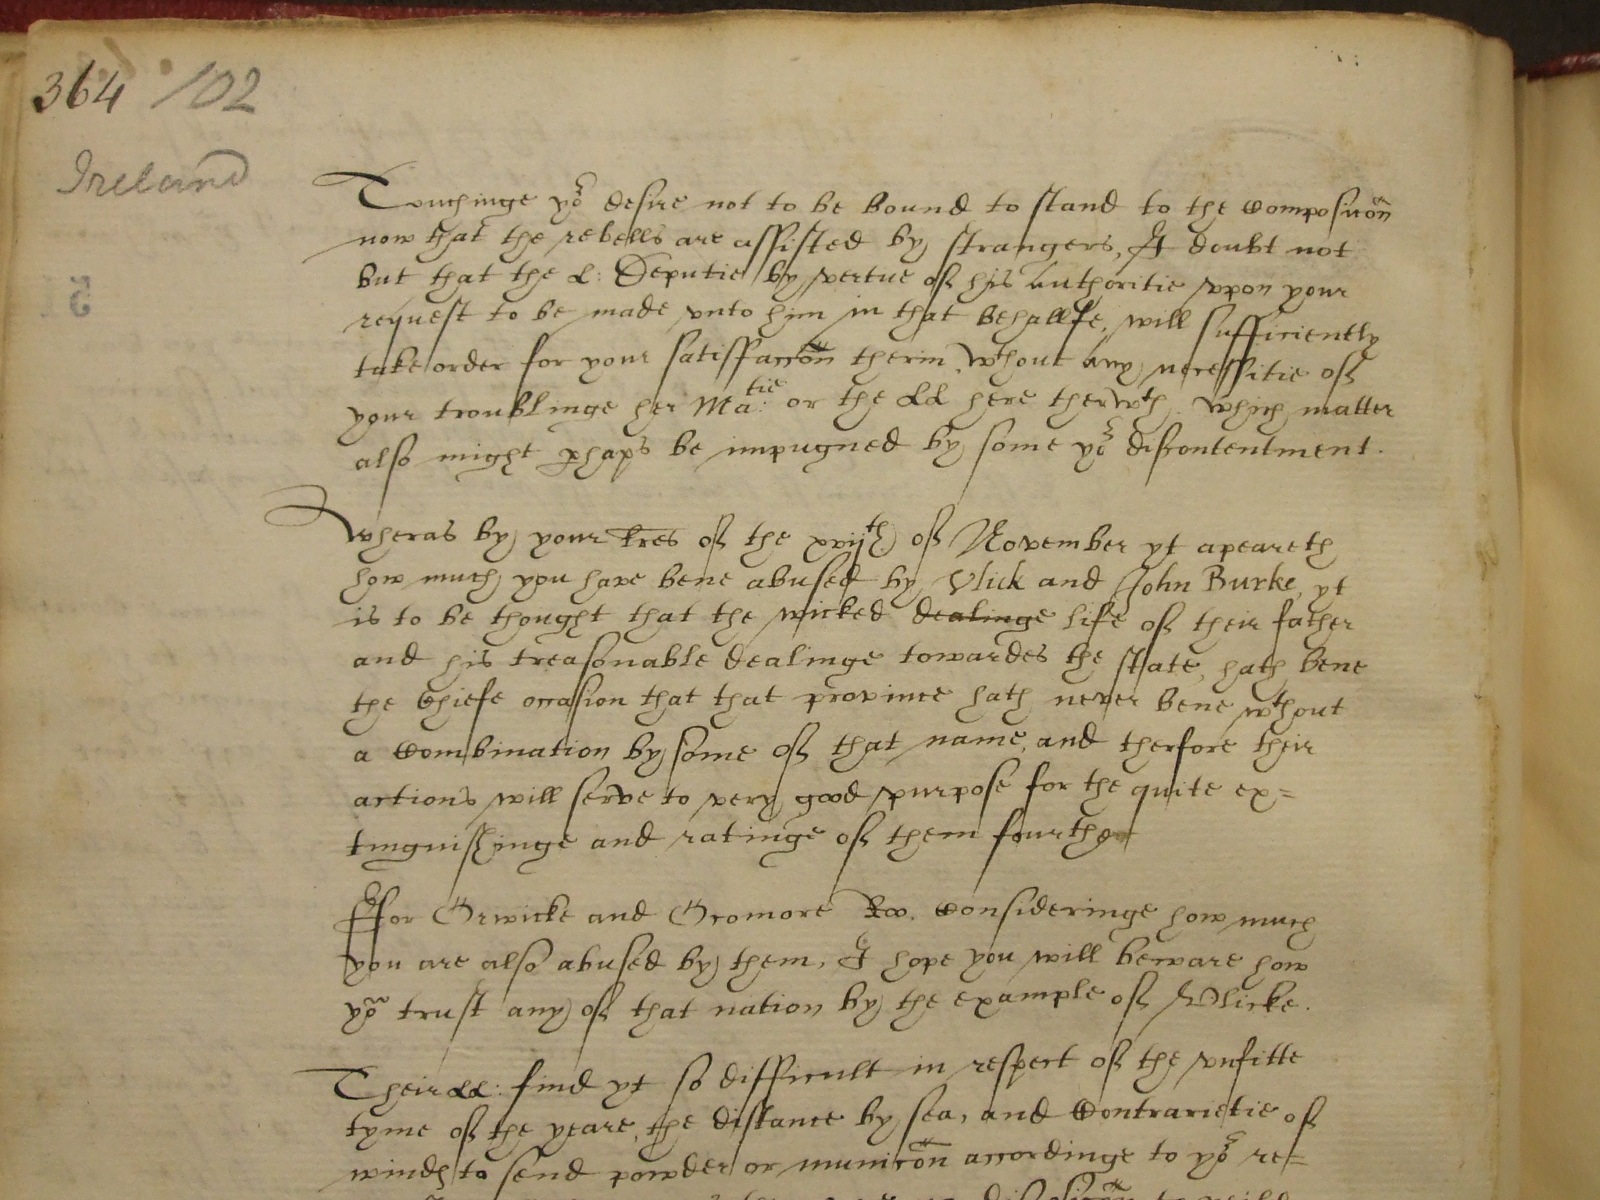 364 102
Ireland
Touchinge yor desire not to be bound to stand to the composicon
now that the rebells are assisted by strangers, I doubt not
but that the L: Deputie by vertue of his authoritie vpon your
request to be made vnto him in that behallfe, will sufficiently
take order for your satisfaccon therin, wthout any necessitie of
your troublinge her Matie: or the LL here therwth. which matter
also might phaps be impugned by some yor discontentment.
Wheras by your lres of the xvijth of November yt apeareth
how much you have bene abused by Vlick and John Burke, yt
is to be thought that the wicked dealinge life of their father
and his treasonable dealinge towardes the state, hath bene
the chiefe occasion that that province hath never bene wthout
a combination by some of that name, and therfore their
actions will serve to very good purpose for the quite ex=
tinguishinge and ratinge of them fourthe
Ffor Orwicke and Oconnore Roo. consideringe how much
you are also abused by them, I hope you will beware how
you trust any of that nation by the example of Vlicke.
Their LL: find yt so difficult in respect of the vnfitte
tyme of the yeare, the distance by sea, and contrarietie of
windes to send powder or municon accordinge to yor re=